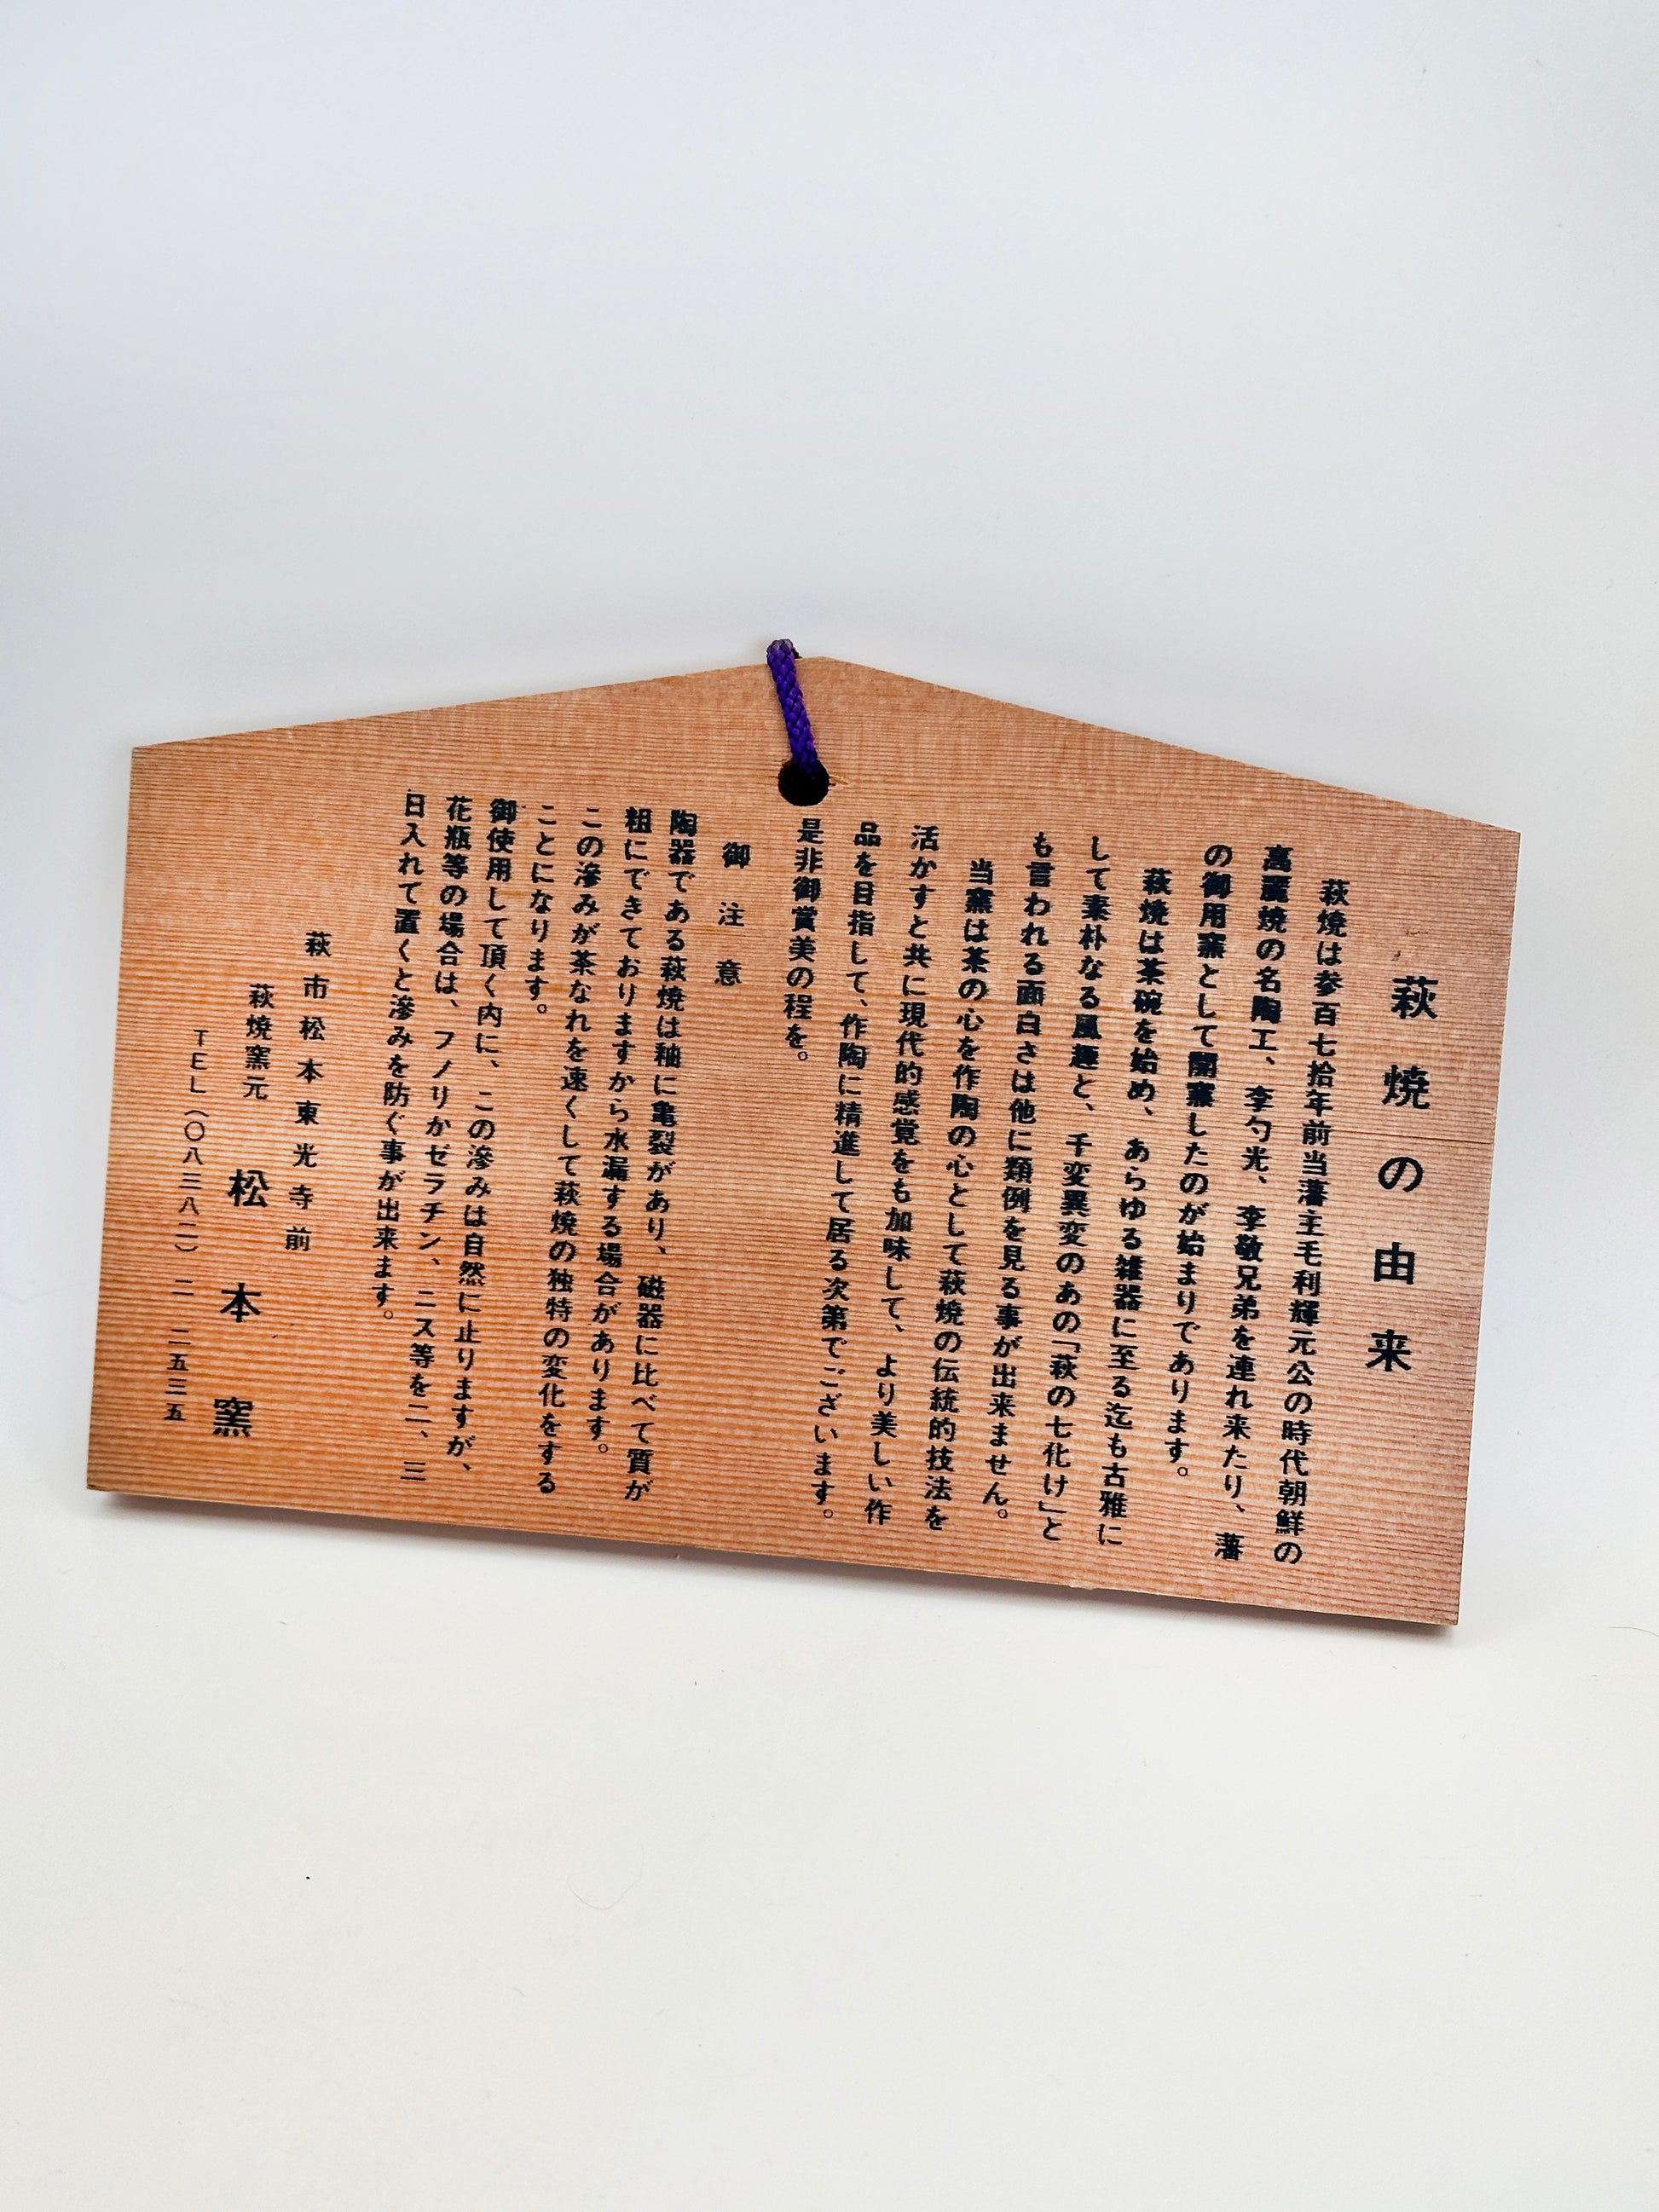 萩焼の由来
萩焼は参百七拾年前当藩主毛利輝元公の時代朝鮮の
高麗焼の名陶工、李勺光、李敬兄弟を連れ来たり、藩
の御用窯として開窯したのが始まりであります。
萩焼は茶碗を始め、あらゆる雑器に至る迄も古雅に
して素朴なる風趣と、千変異変のあの「萩の七化け」と
も言われる面白さは他に類例を見る事が出来ません。
当窯は茶の心を作陶の心として萩焼の伝統的技法を
活かすと共に現代的感覚をも加味して、より美しい作
品を目指して、作陶に精進して居る次第でございます。
是非御賞美の程を。
御注意
陶器である萩焼は釉に亀裂があり、磁器に比べて質が
粗にできておりますから水漏する場合があります。
この滲みが茶なれを速くして萩焼の独特の変化をする
ことになります。
御使用して頂く内に、この滲みは自然に止りますが、
花瓶等の場合は、フノリかゼラチン、ニス等を二、三
日入れて置くと滲みを防ぐ事が出来ます。
萩市松本東光寺前
萩焼窯元 松本窯
TEL(〇八三八二)二-二五三五